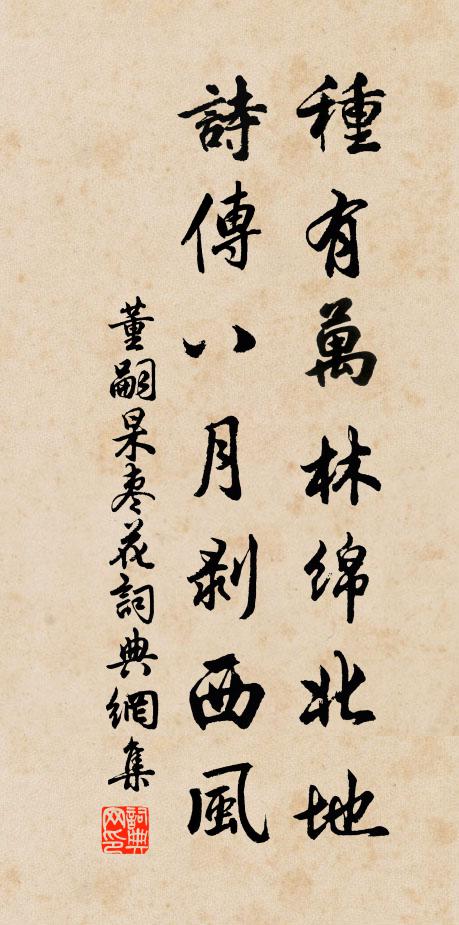 種有萬林綿北地
詩傳八月剥西風
董嗣杲枣花詞典網集
詞典网印